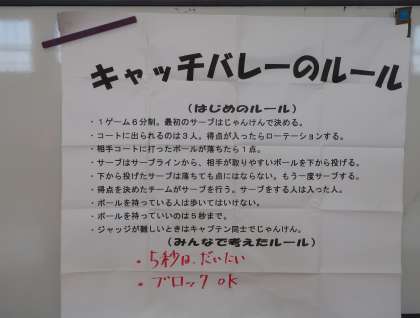 キャッチバレーのルール
(はじめのルール)
・1ゲーム6分制。最初のサーブはじゃんけんで決める。
・コートに出られるのは3人。得点が入ったらローテーションする。
・相手コートに打ったボールが落ちたら1点。
・サーブはサーブラインから、相手が取りやすいボールを下から投げる。
・下から投げたサーブは落ちても点にはならない。もう一度サーブする。
・得点を決めたチームがサーブを行う。サーブをする人は入った人。
・ボールを持っている人は歩いてはいけない。
・ボールを持っていいのは5秒まで。
・ジャッジが難しいときはキャプテン同士でじゃんけん。
(みんなで考えたルール)
・5秒は、だいたい
・ブロックOK